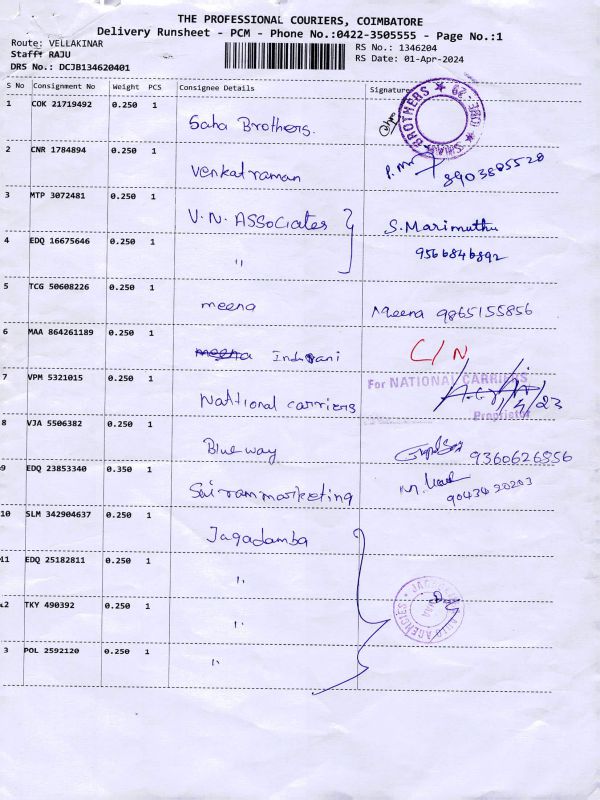 THE PROFESSIONAL COURIERS, COIMBATORE
Delivery Runsheet - PCM - Phone No.:0422-3505555 - Page No.:1
Route: VELLAKINAR RS No.: 1346204
Staff: RAJU RS Date: 01-Apr-2024
DRS No.: DCJB134620401
S No Consignment No Weight PCS Consignee Details Signature
1 COK 21719492 0.250 1 Saha Brothers. BROTHERS
2 CNR 1784894 0.250 1 Venkatraman 8903885528
3 MTP 3072481 0.250 1 V.N. Associates S. Marimuthu
4 EDQ 16675646 0.250 1 " 9566846892
5 TCG 50608226 0.250 1 meena Meena 9865155856
6 MAA 864261189 0.250 1 Indrani C/N
7 VPM 5321015 0.250 1 National carriers For NATIONAL CARRIERS
Proprietor
8 VJA 5506382 0.250 1 Blueway 9360626556
9 EDQ 23853340 0.350 1 Sai ram marketing 9043420203
10 SLM 342904637 0.250 1 Jagadamba
11 EDQ 25182811 0.250 1 "
12 TKY 490392 0.250 1 " AUTO AGENCIES
3 POL 2592120 0.250 1 "